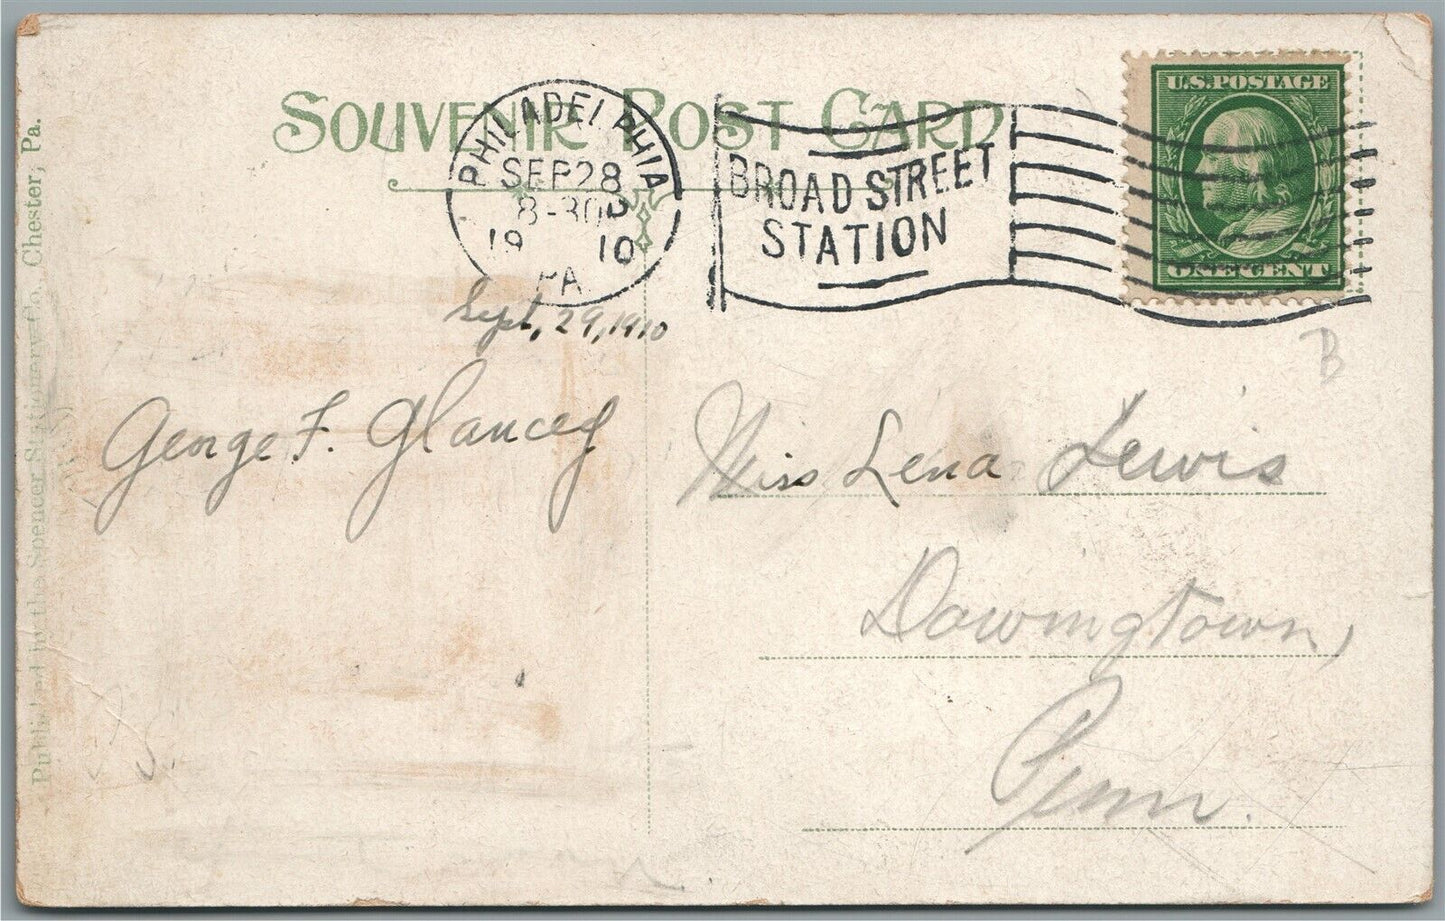 SOUVENIR POST CARD
U.S. POSTAGE
ONE CENT
PHILADELPHIA
SEP 28
8-30P
1910
PA.
BROAD STREET
STATION
Sept, 29, 1910
B
George F. Glancey
Miss Lena Lewis
Downingtown,
Penn.
Published by the Spencer Stationery Co., Chester, Pa.